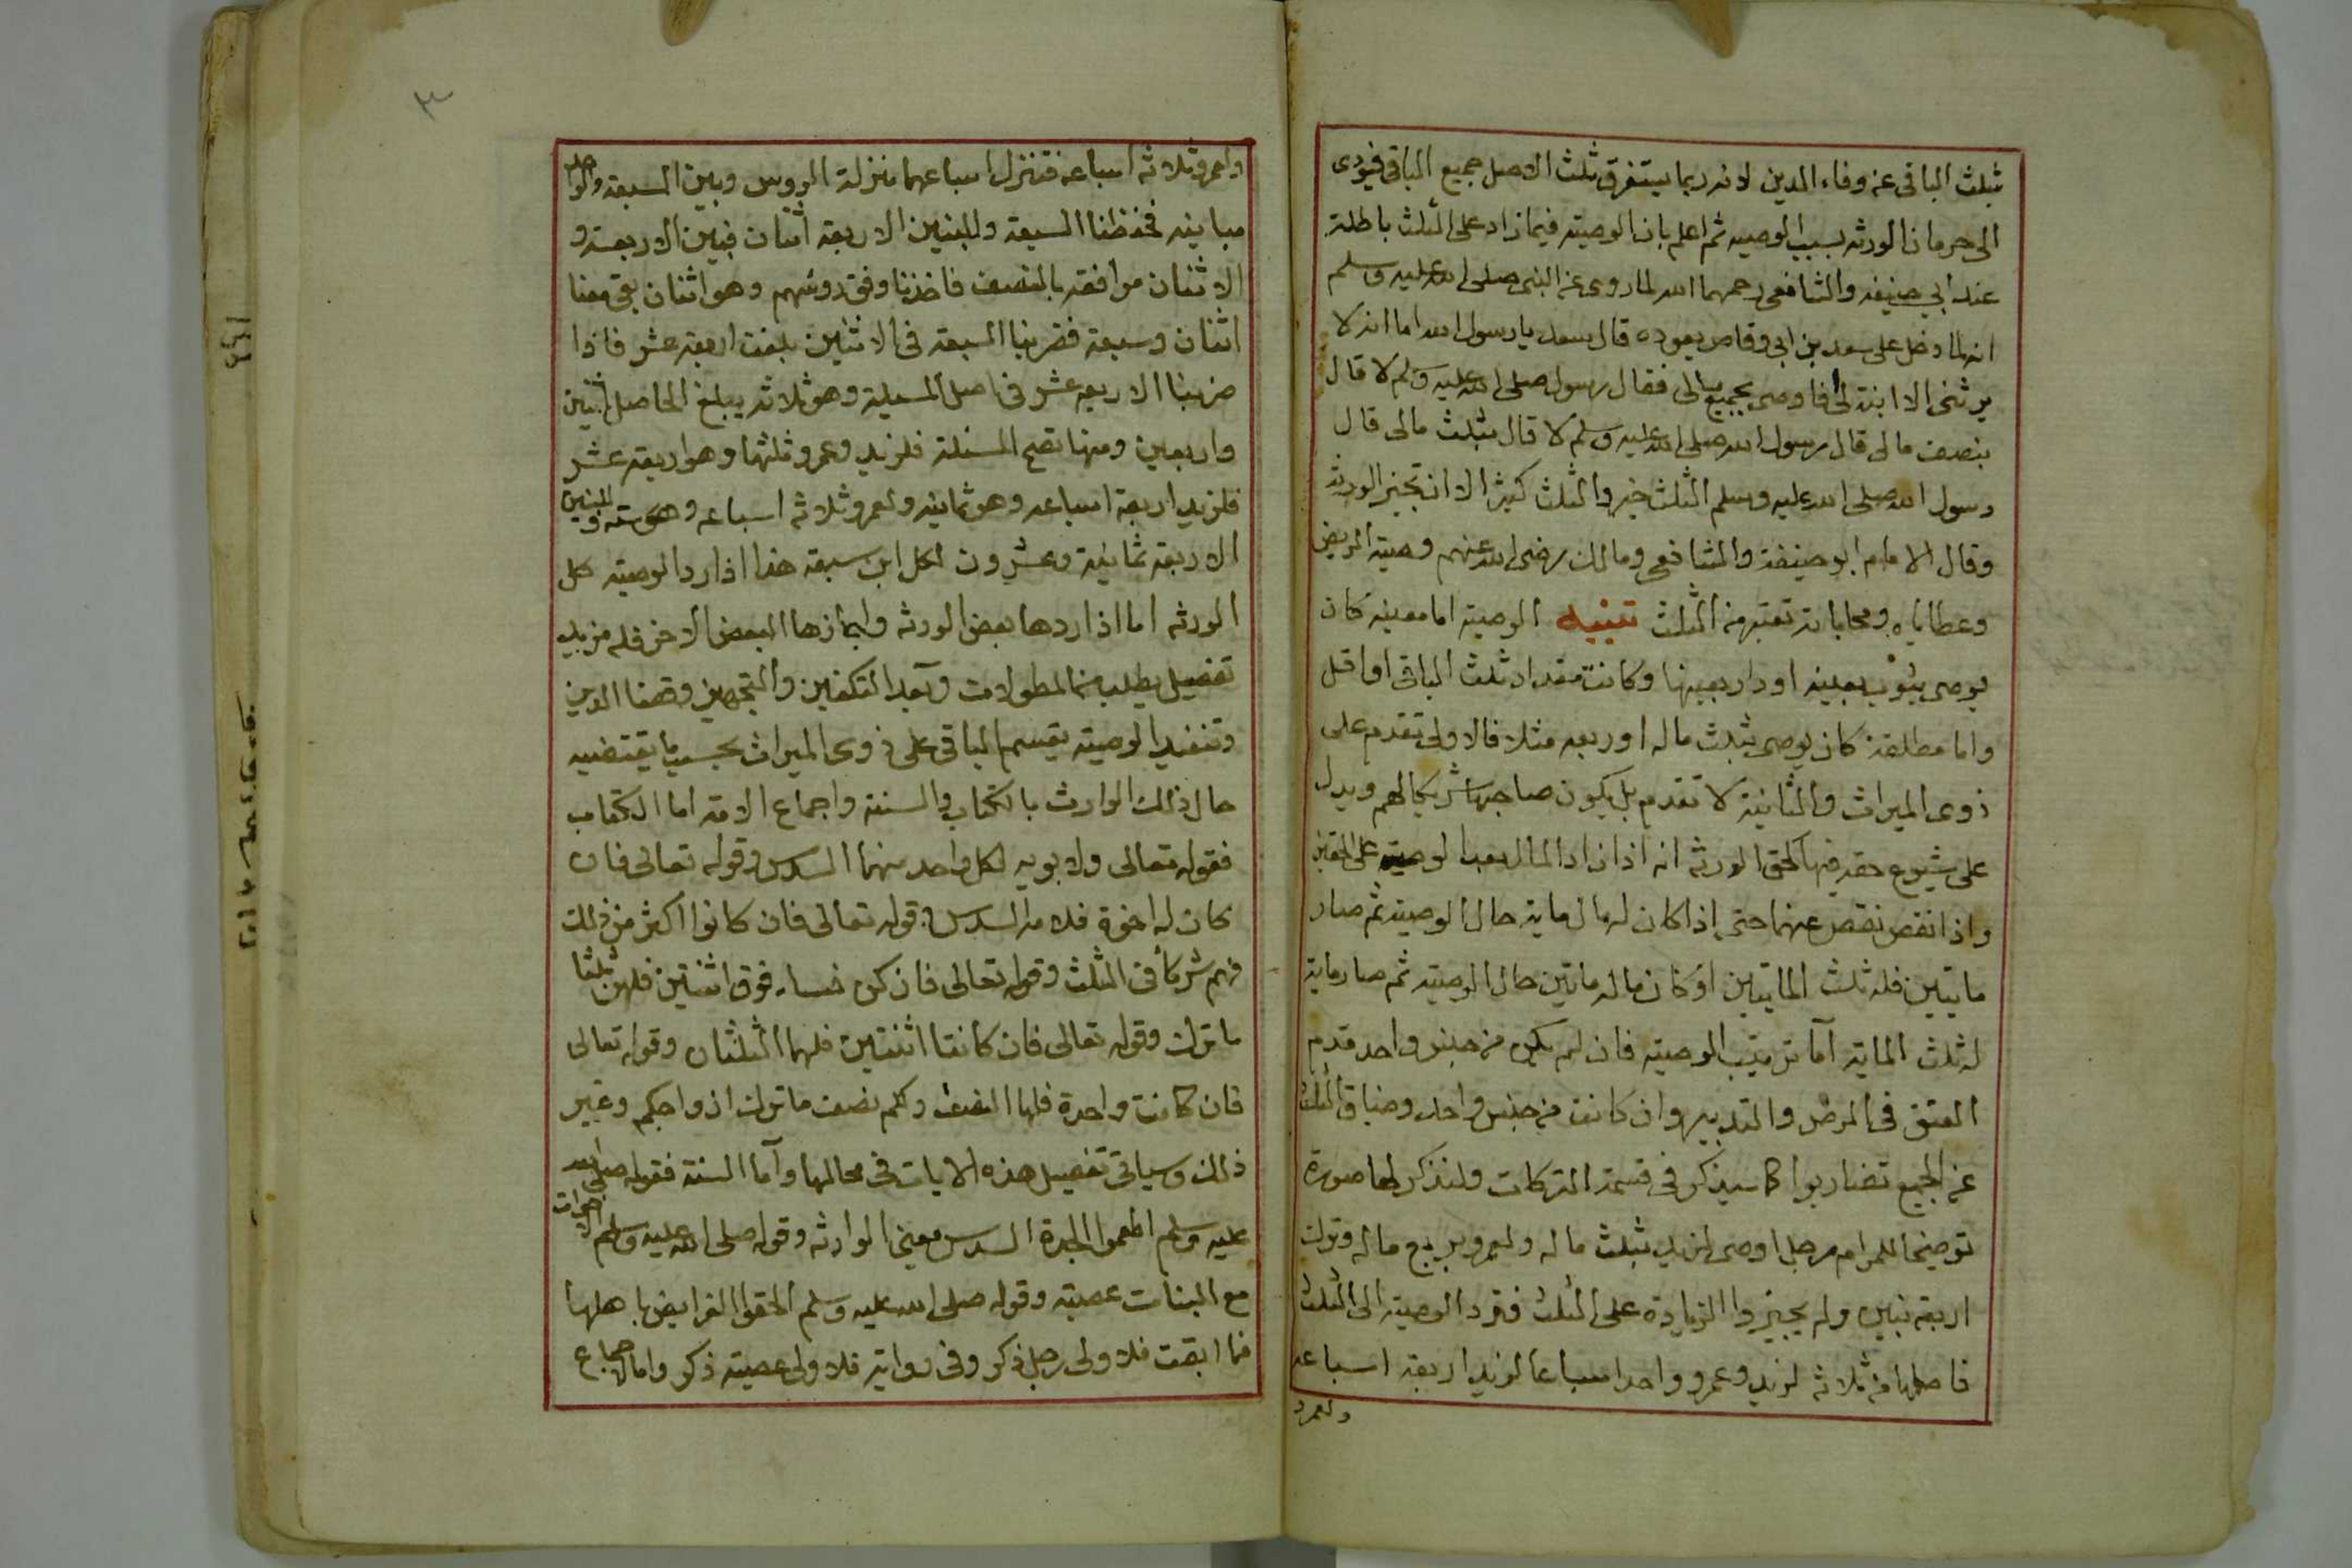 بثلث الباقى عن وفاء الدين لانه ربما يستغرق ثلث الاصل جميع الباقى فيودى
الى حرمان الورثه بسبب الوصيه ثم اعلم بان الوصيته فيما زاد على الثلث باطلة
عند ابي حنيفه والشافعى رحمهما الله لما روى عن النبى صلى الله عليه وسلم
انه لما دخل على سعد بن ابى وقاص يعوده قال سعد يا رسول الله اما انه لا
يرثنى الا ابنة لى افاوصى بجميع مالى فقال رسول صلى الله عليه وسلم لا قال
بنصف مالى قال رسول الله صلى الله عليه وسلم لا قال بثلث مالى قال
رسول الله صلى الله عليه وسلم الثلث خير والثلث كثير الا ان تجيز الورثة
وقال الامام ابو حنيفة والشافعى ومالك رضى الله عنهم وصية المريض
وعطاياه ومحاباته تعتبر من الثلث تنبيه الوصيته اما معينه كان
يوصى بثوب بعينه او دار بعينها وكانت مقدار ثلث الباقى او اقل
واما مطلقة كان يوصى بثلث ماله او ربعه مثلا فالاولى تقدم على
ذوى الميراث والثانية لا تقدم بل يكون صاحبها شريكا لهم ويدل
على شيوع حقه فيها كحق الورثه انه اذا زاد المال بعد الوصيته على الحقين
واذا نقص نقص عنهما حتى اذا كان له مال ماية حال الوصيته ثم صار
مايتين فله ثلث المايتين او كان ماله مايتين حال الوصيته ثم صار ماية
له ثلث الماية اما ترتيب الوصيته فان لم يكن من جنس واحد قدم
العتق فى المرض والتدبير وان كانت من جنس واحد وضاق الثلث
عن الجميع تضاربوا كما سيذكر فى قسمة التركات ولنذكر لها صورة
توضيحا للمرام رجل اوصى لزيد بثلث ماله ولعمرو بربع ماله وترك
اربعة بنين ولم يجيزوا الزيادة على الثلث فترد الوصيته الى الثلث
فاصلها من ثلاثه لزيد وعمرو واحد اسباعا لزيد اربعة اسباعه
ولعمرو
٣
ولعمرو ثلاثه اسباعه فتنزل اسباعهما منزلة الروس وبين السبعه والواحد
مباينه فحفظنا السبعة وللبنين الاربعة اثنان فبين الاربعة و
الاثنان موافقه بالنصف فاخذنا وفق روسهم وهو اثنان بقى معنا
اثنان وسبعة فضربنا السبعة فى الاثنين بلغت اربعة عشر فاذا
ضربنا الاربعه عشر فى اصل المسيلة وهو ثلاثه يبلغ الحاصل اثنين
واربعين ومنها تصح المسئلة فلزيد وعمرو ثلثها وهو اربعة عشر
فلزيد اربعة اسباعه وهو ثمانيه ولعمرو ثلاثه اسباعه وهو ستة وللبنين
الاربعة ثمانية وعشرون لكل ابن سبعة هذا اذا رد الوصيته كل
الورثه اما اذا ردها بعض الورثه واجازها البعض الاخر فله مزيد
تفصيل يطلب من المطولات وبعد التكفين والتجهيز وقضا الدين
وتنفيد الوصيته يقسم الباقى على ذوى الميراث بحسب ما يقتضيه
حال ذلك الوارث بالكتاب والسنة واجماع الامة اما الكتاب
فقوله تعالى ولابويه لكل واحد منهما السدس وقوله تعالى فان
كان له اخوة فلامه السدس وقوله تعالى فان كانوا اكثر من ذلك
فهم شركا فى الثلث وقوله تعالى فان كن نساء فوق اثنتين فلهن ثلثا
ما ترك وقوله تعالى فان كانتا اثنتين فلهما الثلثان وقوله تعالى
فان كانت واحدة فلها النصف ولكم نصف ما ترك ازواجكم وغير
ذلك وسياتى تفصيل هذه الايات فى محالها واما السنة فقوله صلى الله
عليه وسلم اطعموا الجدة السدس معنى الوارثه وقوله صلى الله عليه وسلم الاخوات
مع البنات عصبته وقوله صلى الله عليه وسلم الحقوا الفرايض باهلها
فما ابقت فلاولى رجل ذكر وفى رواية فلاولى عصبته ذكر واما الاجماع